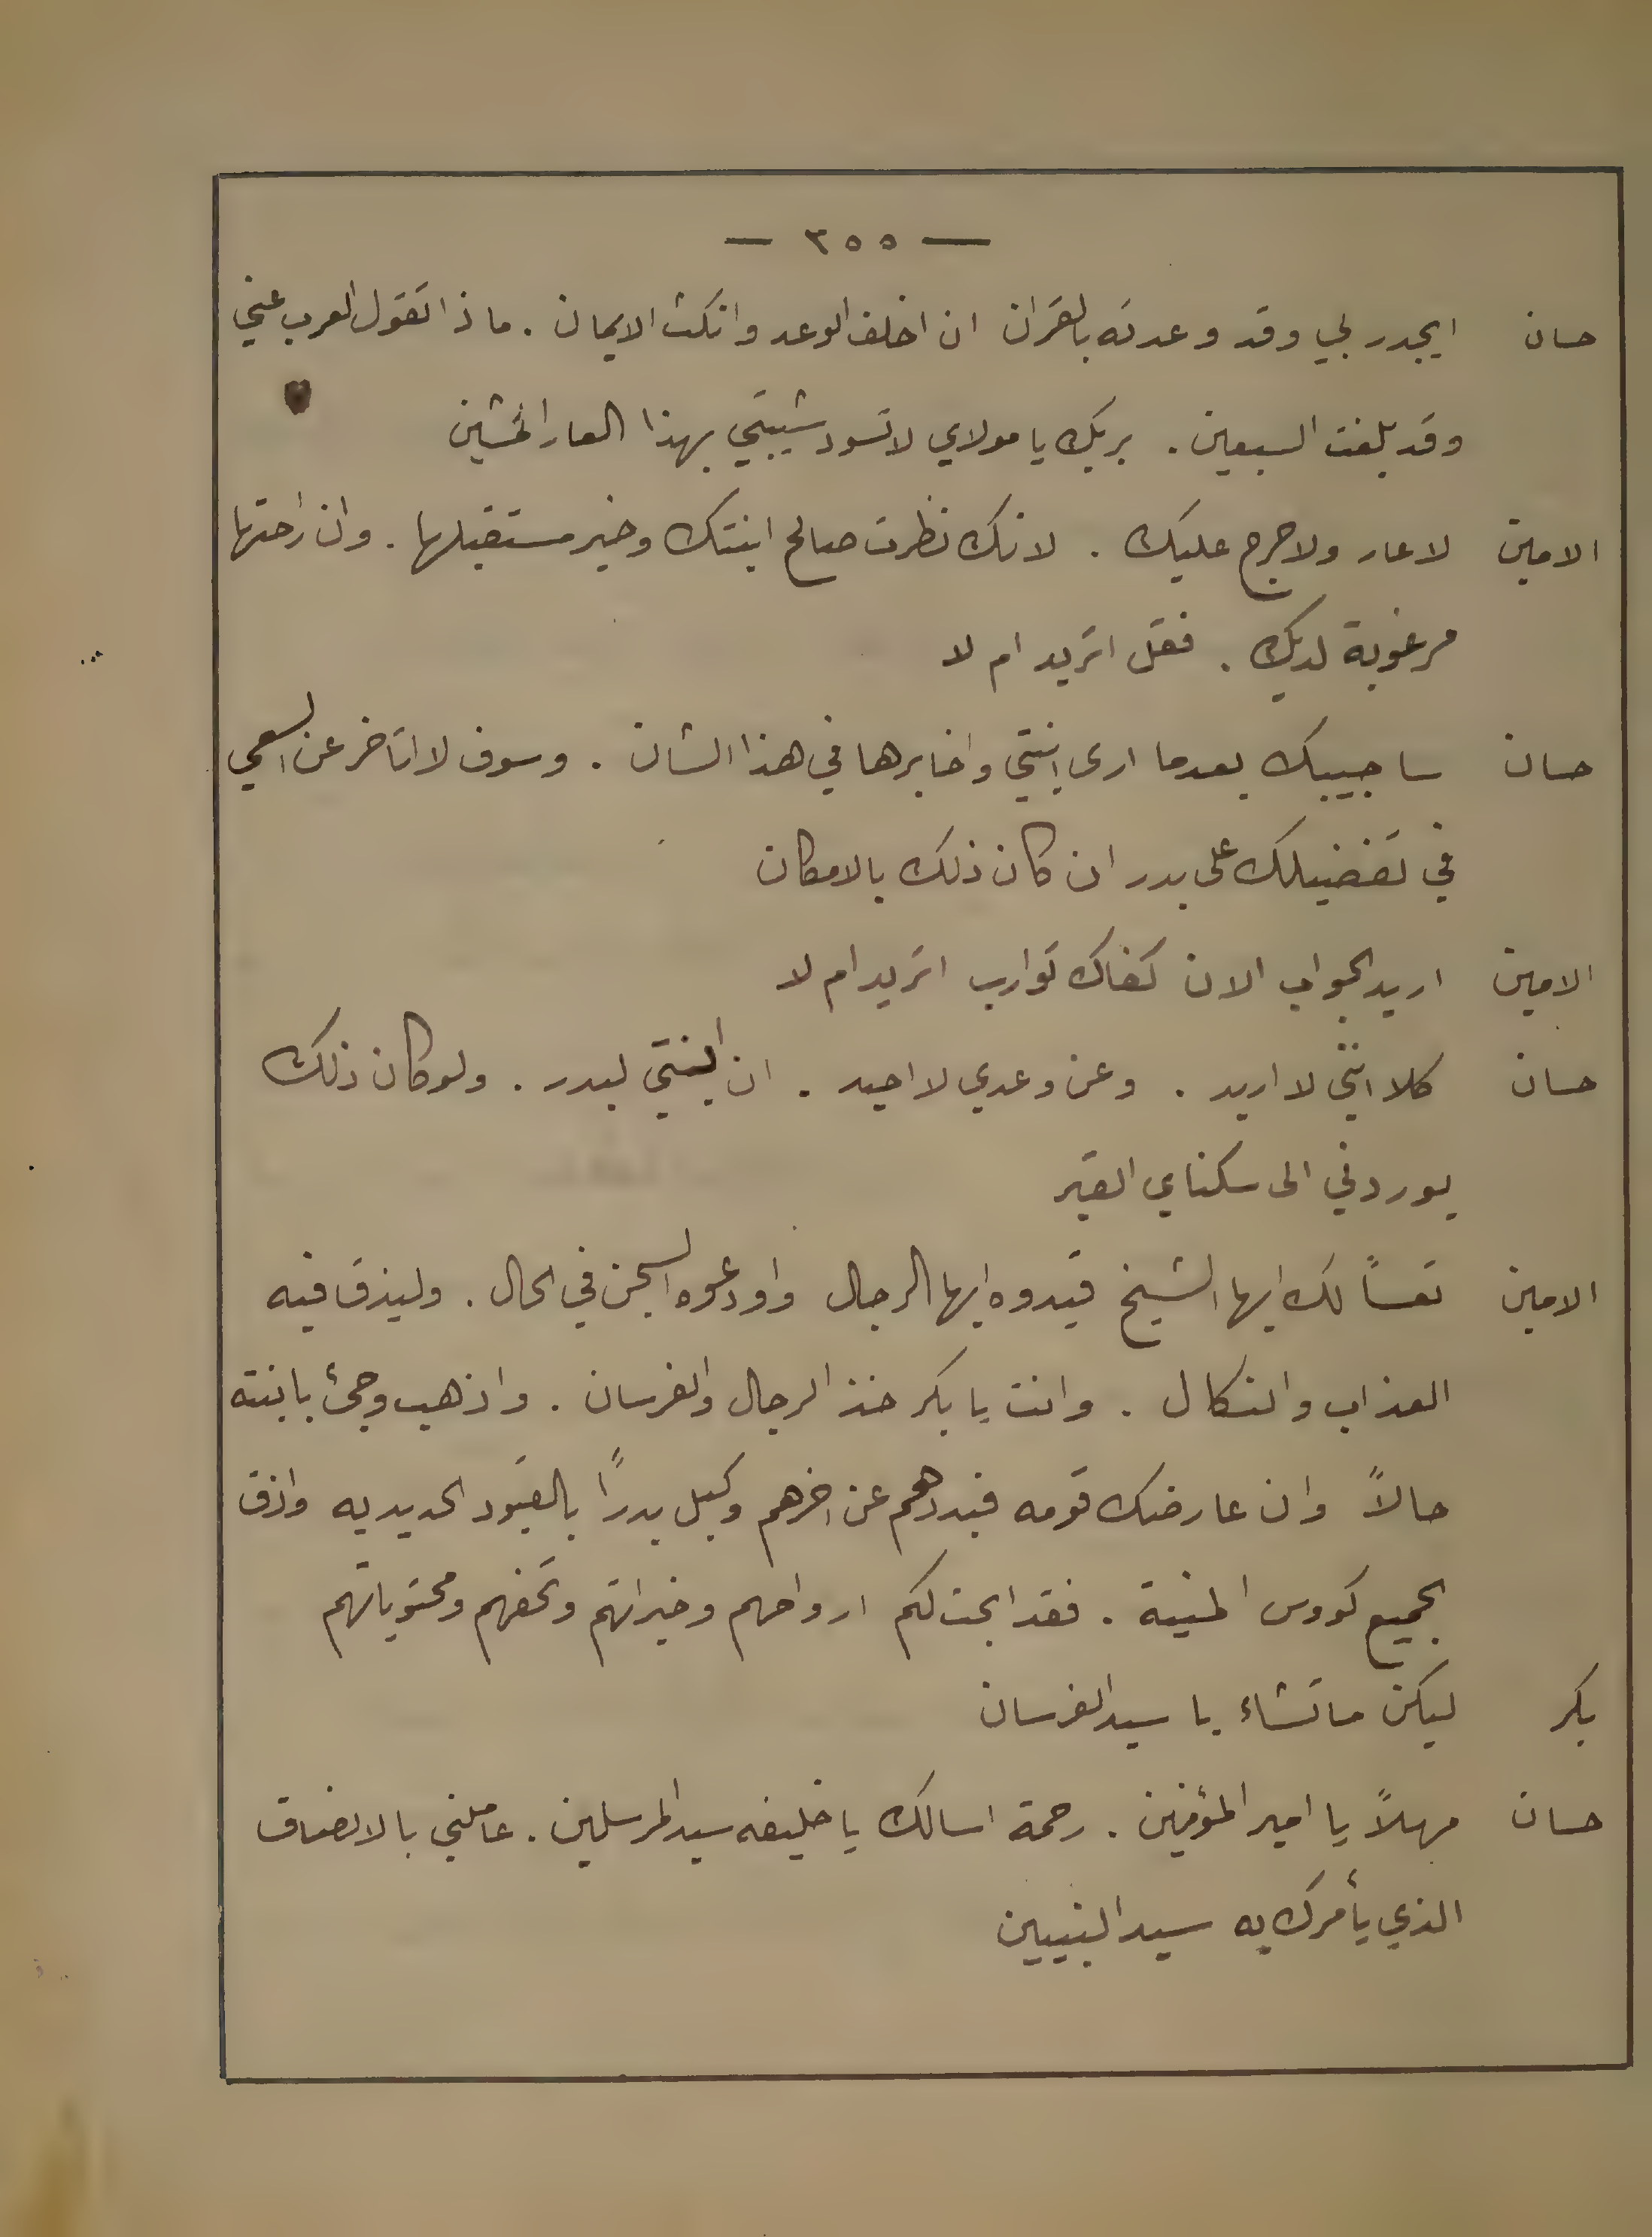 — ٣٥٥ —
حسان ايجدر لي وقد وعدته بالقران ان اخلف الوعد وانكث الايمان . ماذا تقول العرب عني
وقد بلغت السبعين . بربك يا مولاي لا تسود شيبتي بهذا العار المشين
الامين لا عار ولا حرج عليك . لانك نظرت صالح ابنتك وخير مستقبلها . وان راحتها
مرغوبة لديك . فقل اتريد ام لا
حسان ساجيبك بعدما ارى ابنتي واخابرها في هذا الشان . وسوف لا اتاخر عن السعي
في تفضيلك على بدر ان كان ذلك بالامكان
الامين اريد الجواب الان كفاك توارب اتريد ام لا
حسان كلا انني لا اريد . وعن وعدي لا احيد . ان ابنتي لبدر . ولو كان ذلك
يوردني الى سكناي القبر
الامين تعسًا لك ايها الشيخ قيدوه ايها الرجال واودعوه السجن في الحال . وليذق فيه
العذاب والنكال . وانت يا بكر خذ الرجال والفرسان . واذهب وجئ بابنته
حالاً وان عارضك قومه فبددهم عن اخرهم وكبل بدرًا بالقيود الحديديه واذق
الجميع كووس المنية . فقد ابحت لكم ارواحهم وخيراتهم وتحفهم ومحتوياتهم
بكر ليكن ما تشاء يا سيد الفرسان
حسان مهلاً يا امير المؤمنين . رحمة اسالك يا خليفه سيد المرسلين . عاملني بالانصاف
الذي يأمرك به سيد النبيين